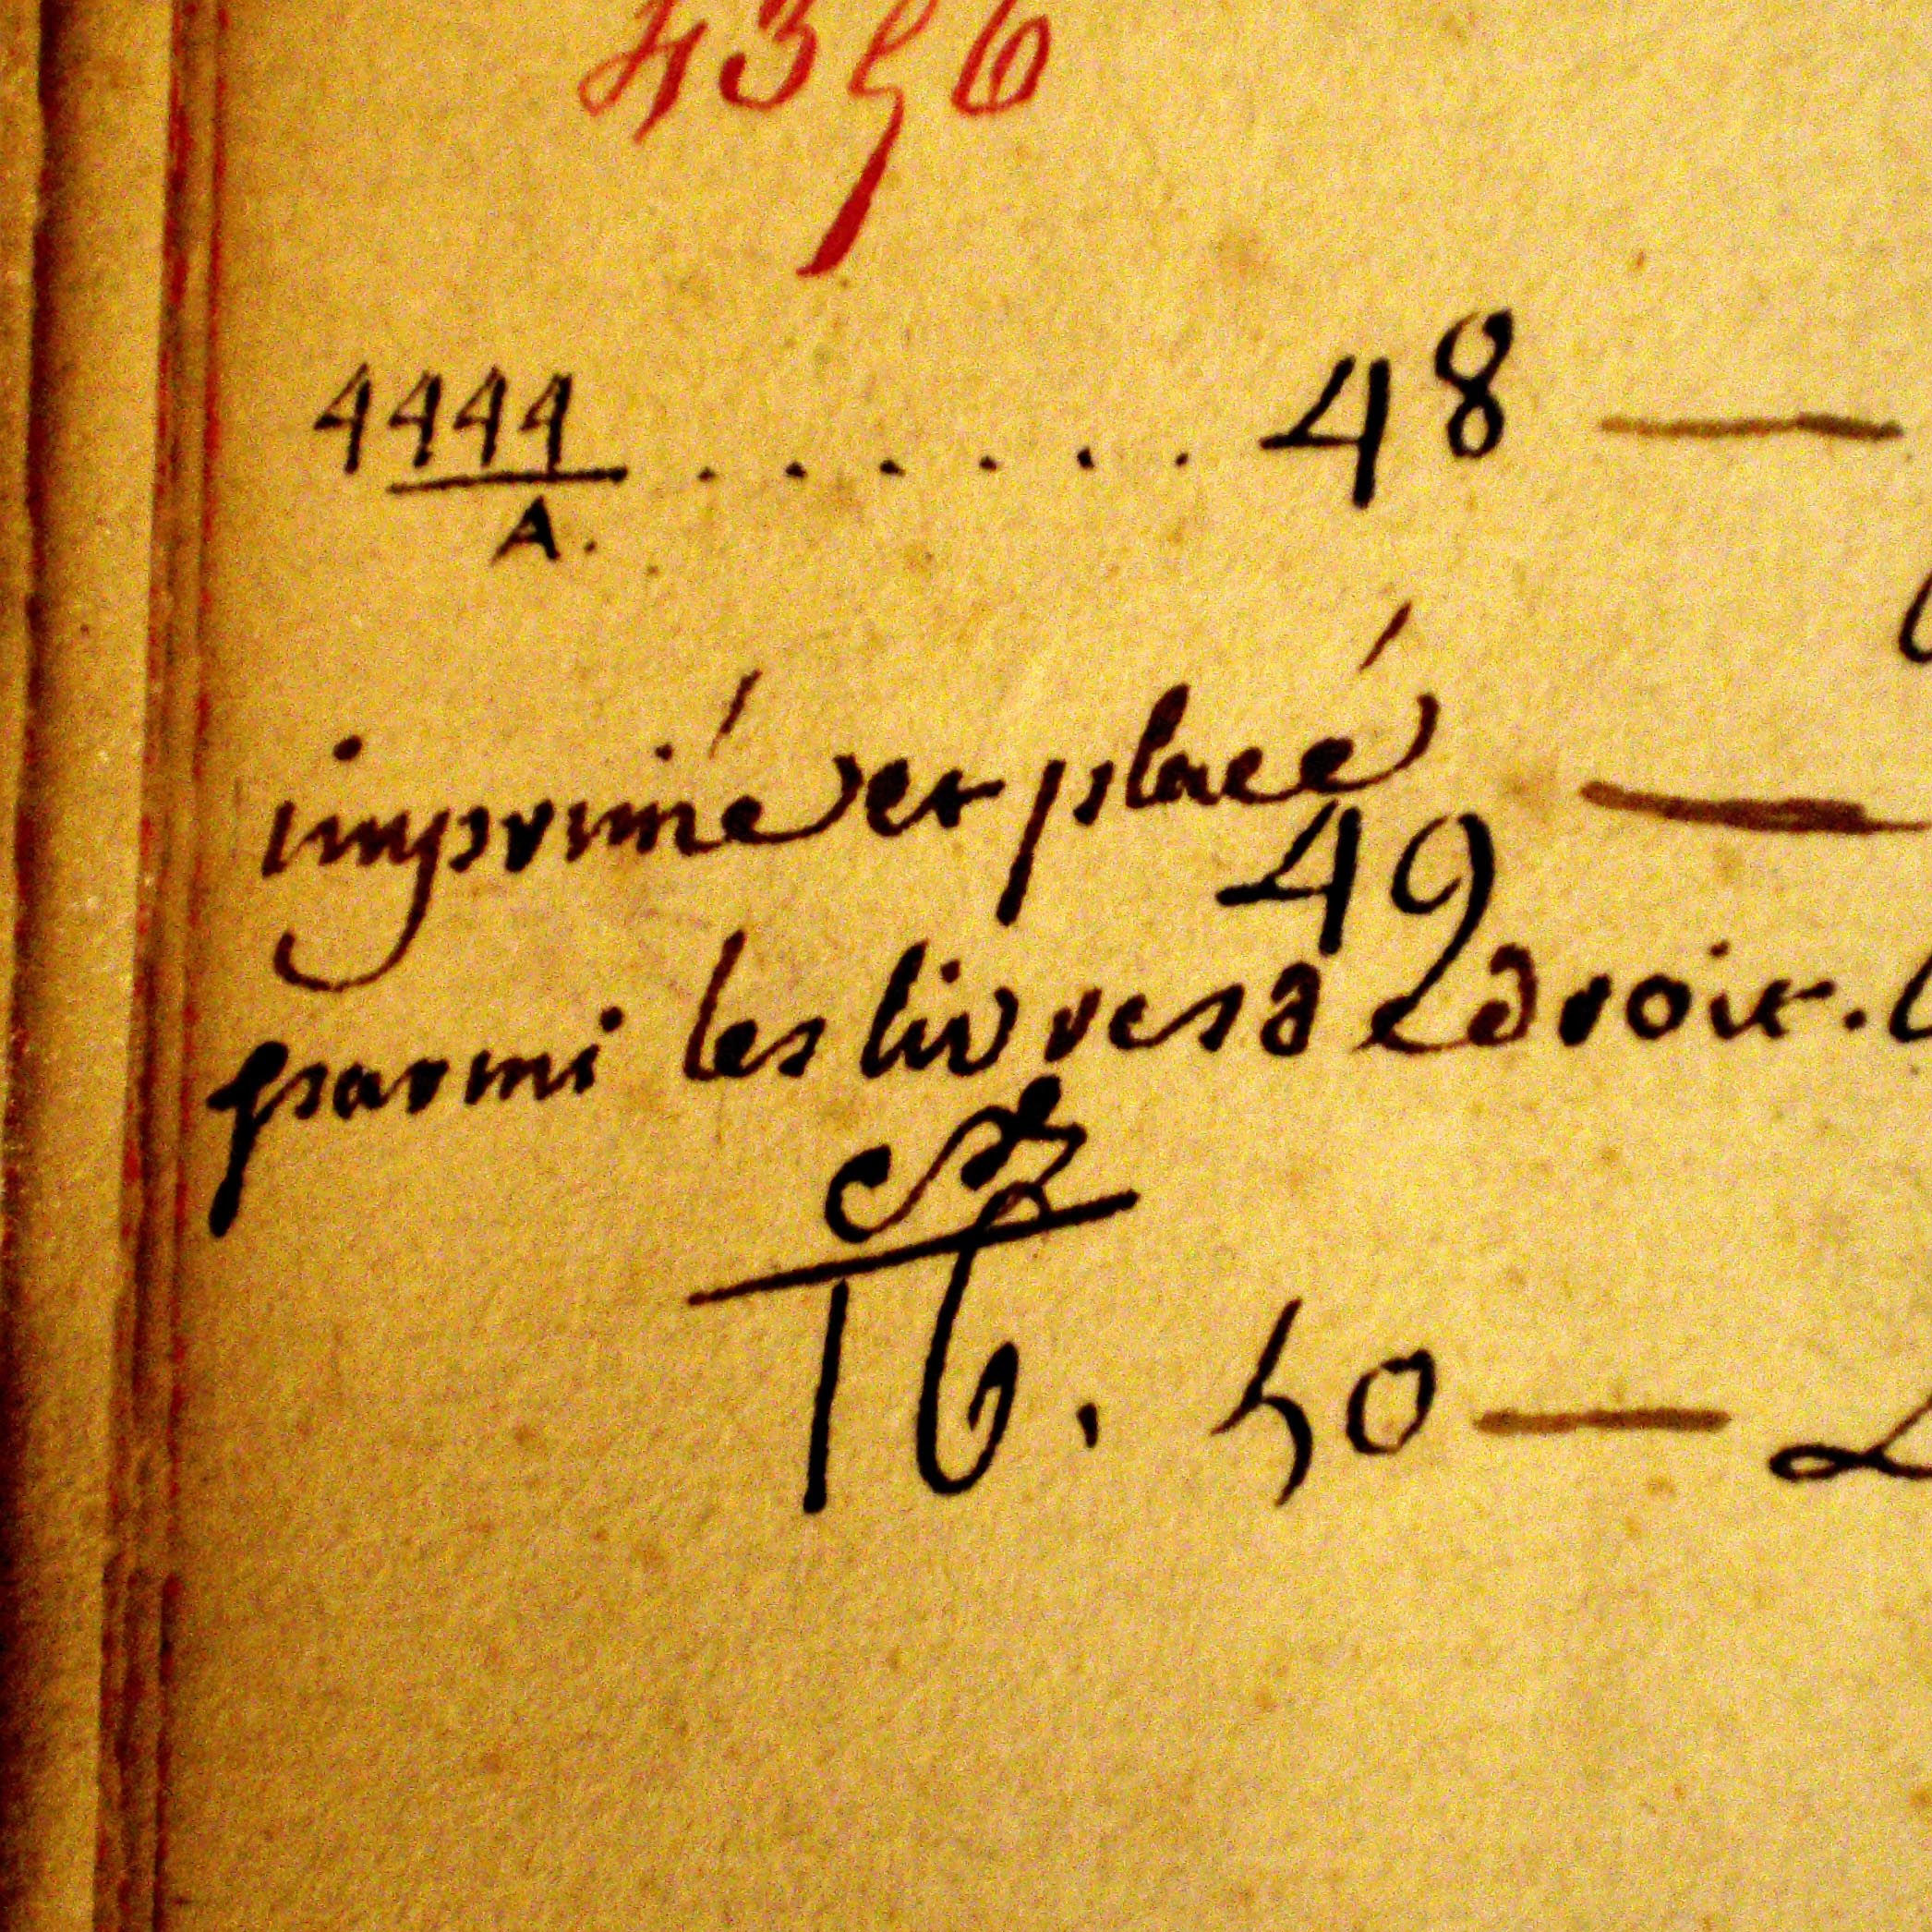 4356
4444 . . . . . . 48 —
A.
imprimé et placé —
49
parmi les livres de droit.
16. 50 —